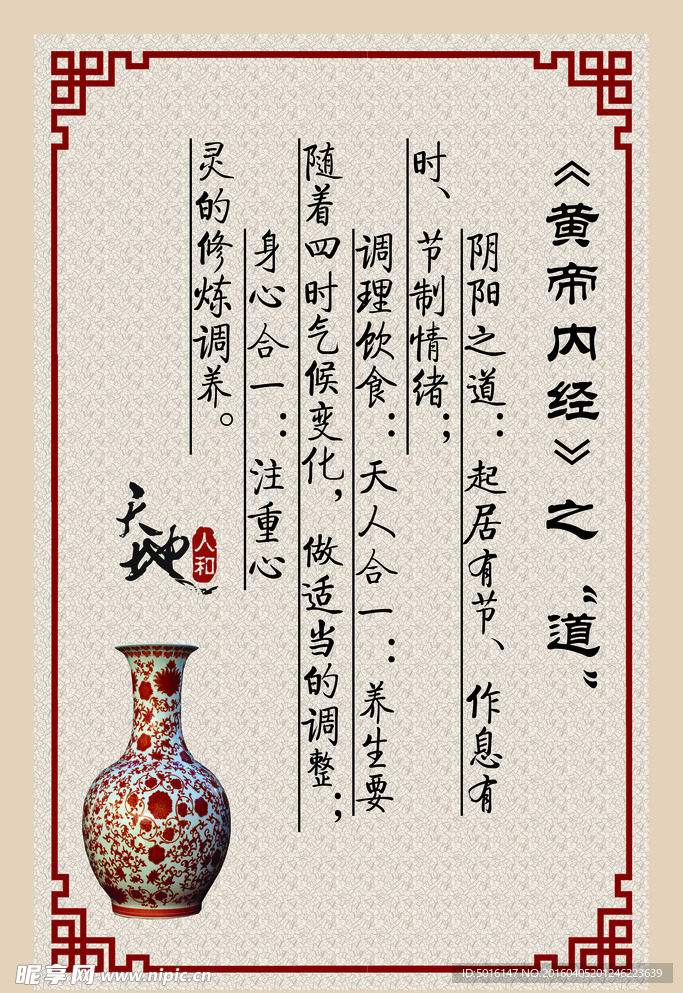 《黄帝内经》之“道”
阴阳之道：起居有节、作息有
时、节制情绪；
调理饮食：天人合一：养生要
随着四时气候变化，做适当的调整；
身心合一：注重心
灵的修炼调养。
天地
人和
昵享网 www.nipic.cn
ID:5016147 NO:20160405201246223639